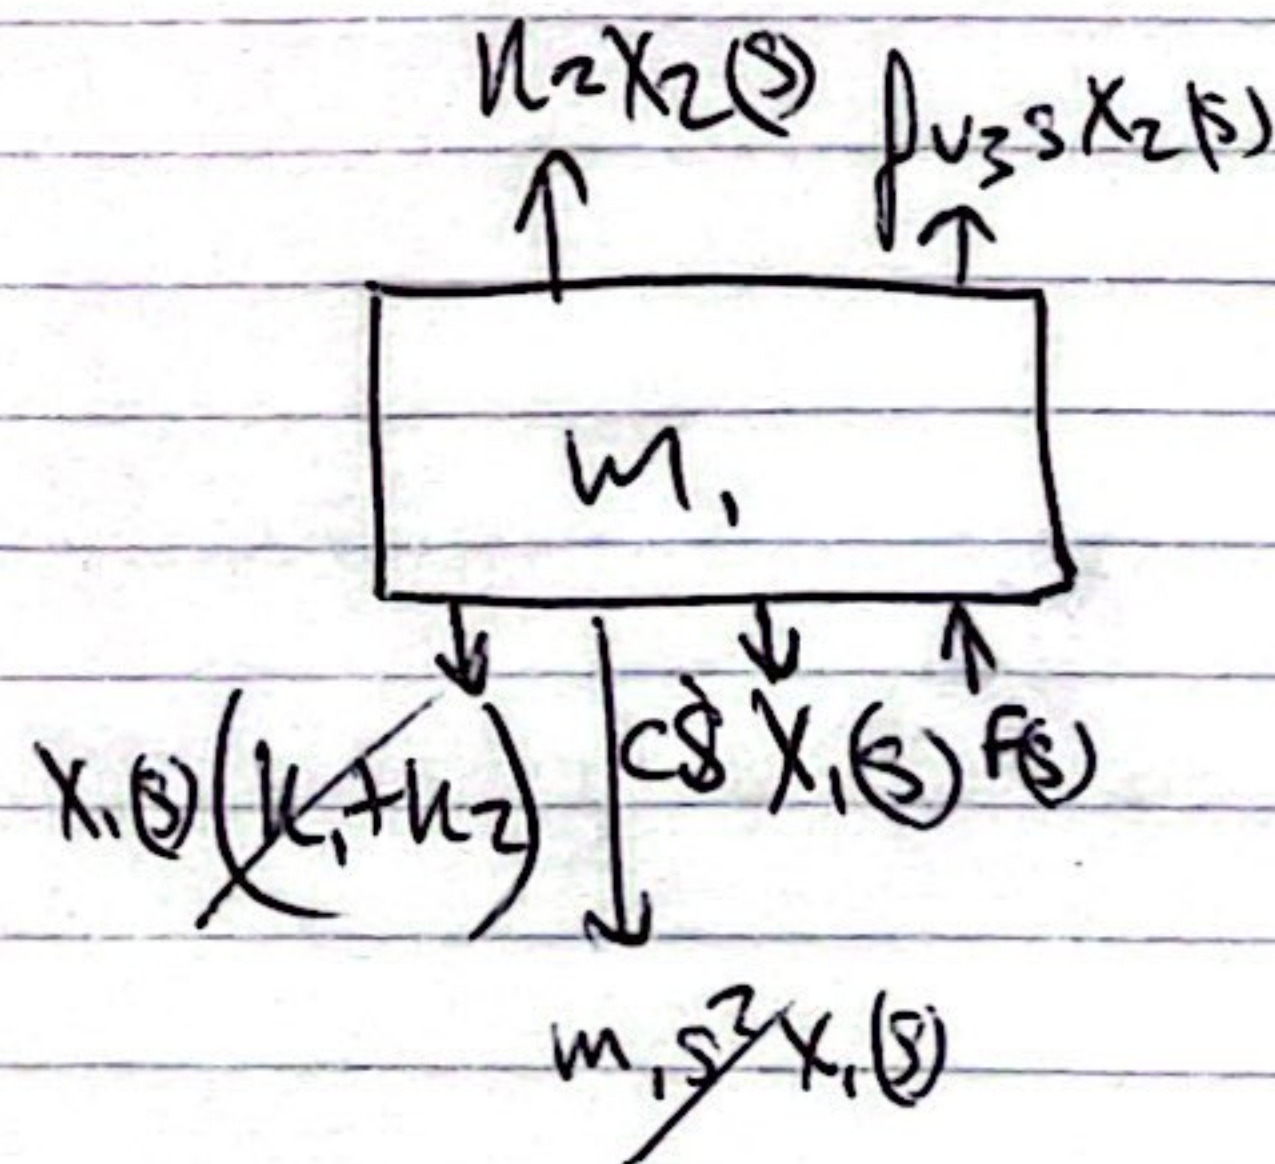 k₂X₂(s) fv₃sX₂(s)
m₁
X₁(s)(k₁+k₂) cs X₁(s) F(s)
m₁s²X₁(s)